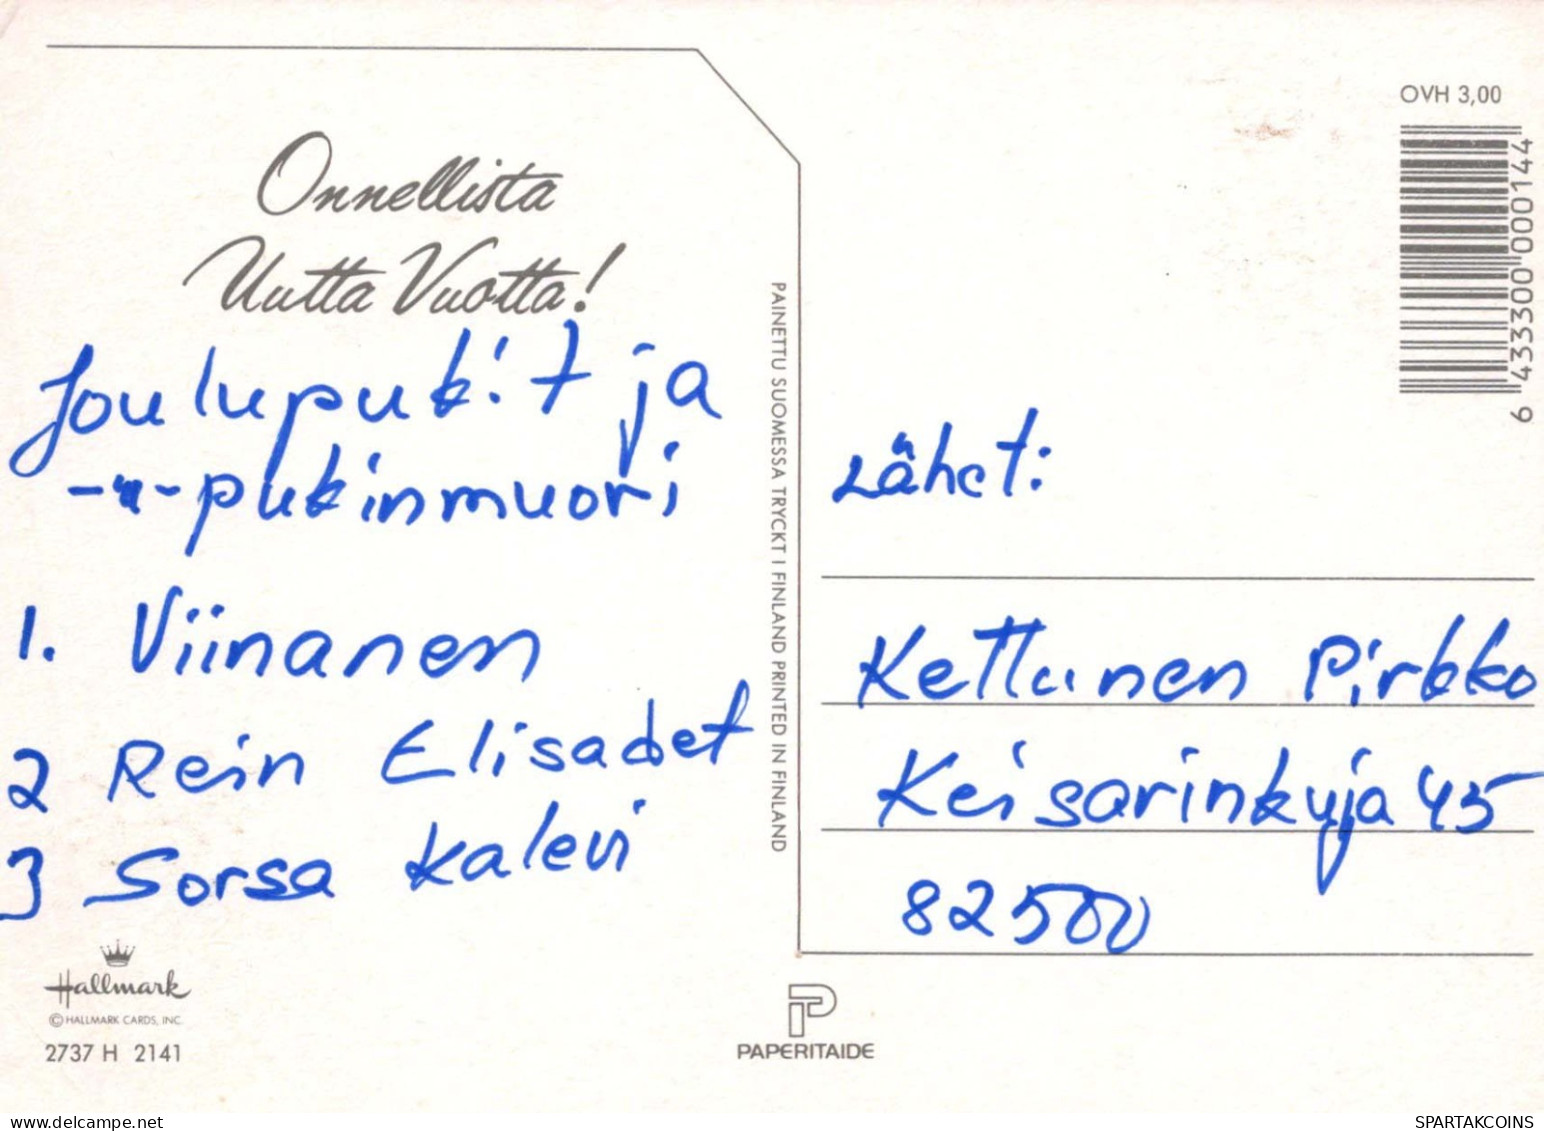 Onnellista
Uutta Vuotta!
Joulupukit ja
-"- pukinmuori
1. Viinanen
2 Rein Elisabet
3 Sorsa Kalevi
Hallmark
© HALLMARK CARDS, INC.
2737 H 2141
PAINETTU SUOMESSA TRYCKT I FINLAND PRINTED IN FINLAND
PAPERITAIDE
OVH 3,00
6 433300 000144
Lähet:
Kettunen Pirkko
Keisarinkuja 45
82500
delcampe.net
SPARTAKCOINS